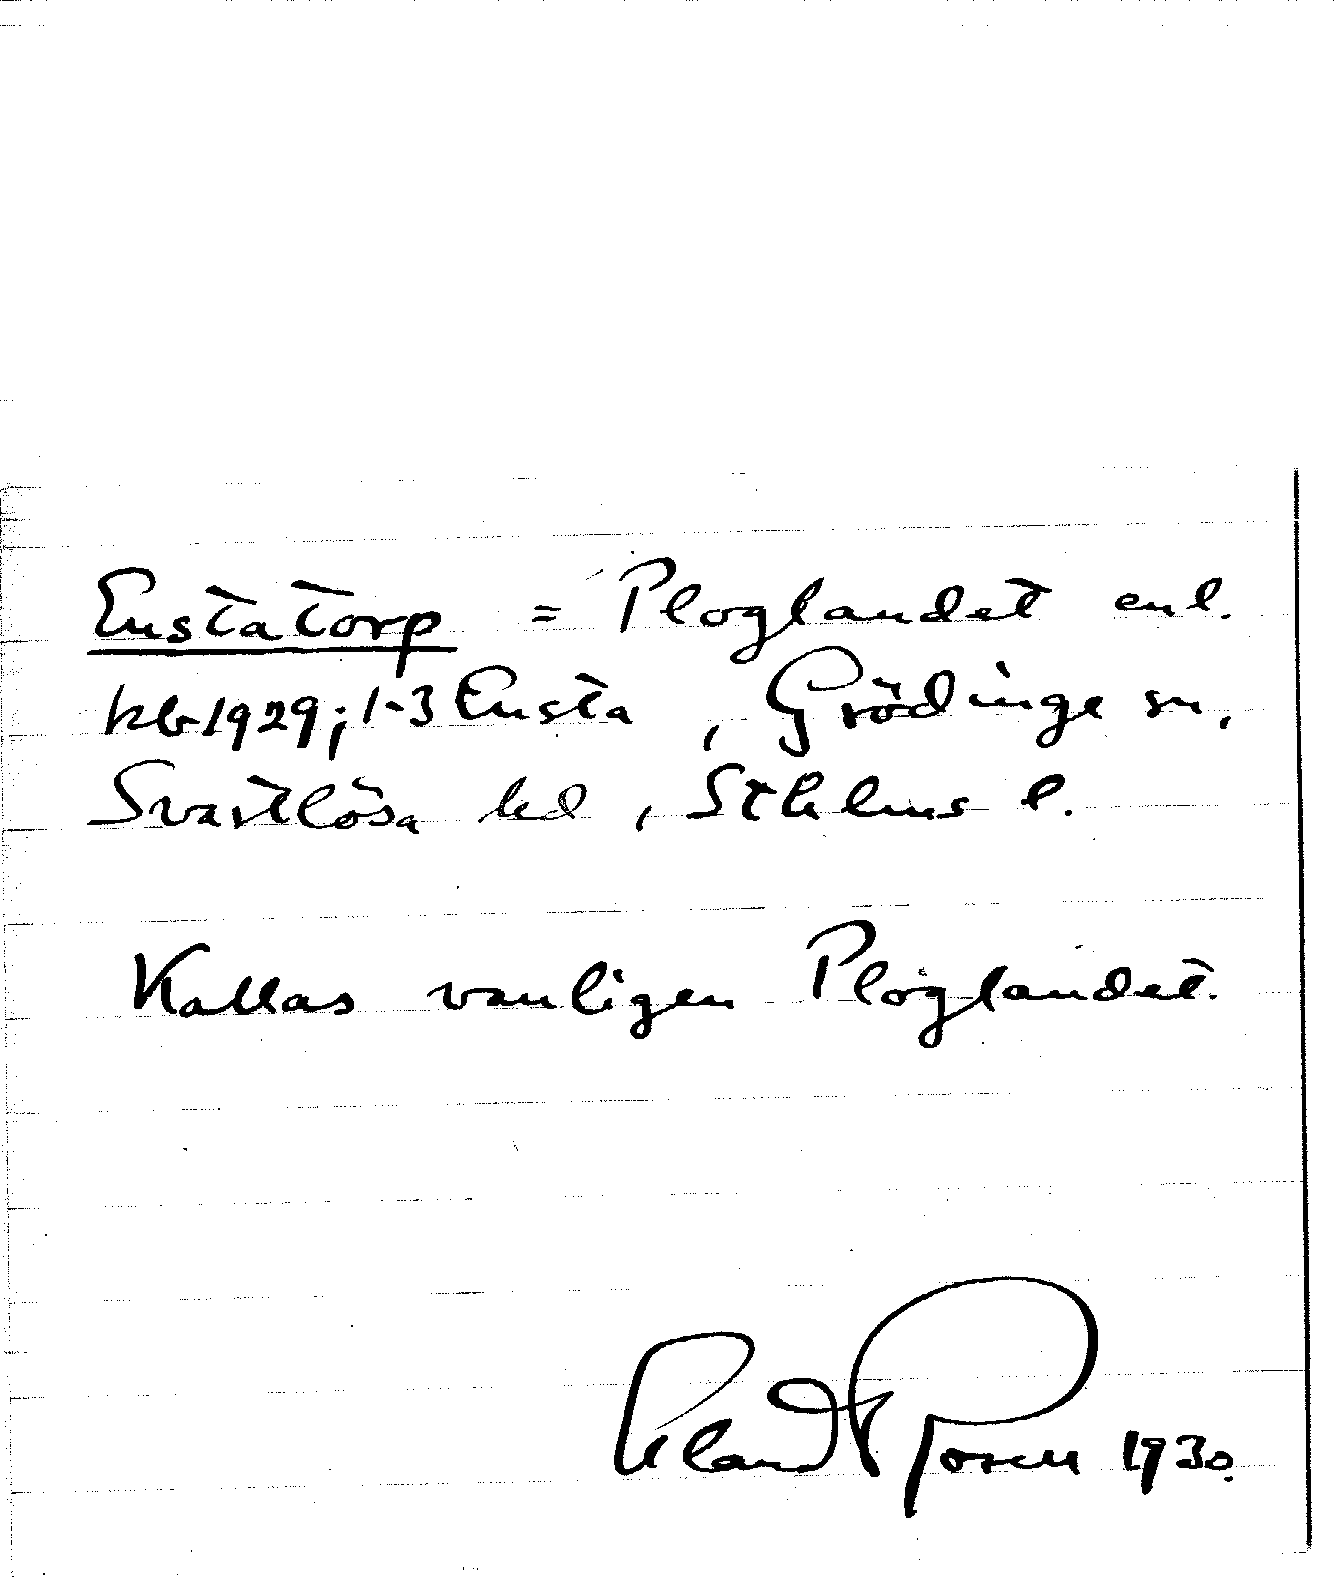 Eustatorp = Ploglandet enl.
kb 1929; 1-3 Eusta, Grödinge sn,
Svartlösa hd, Sthlms l.
Kallas vanligen Ploglandet.
Rosén 1930.